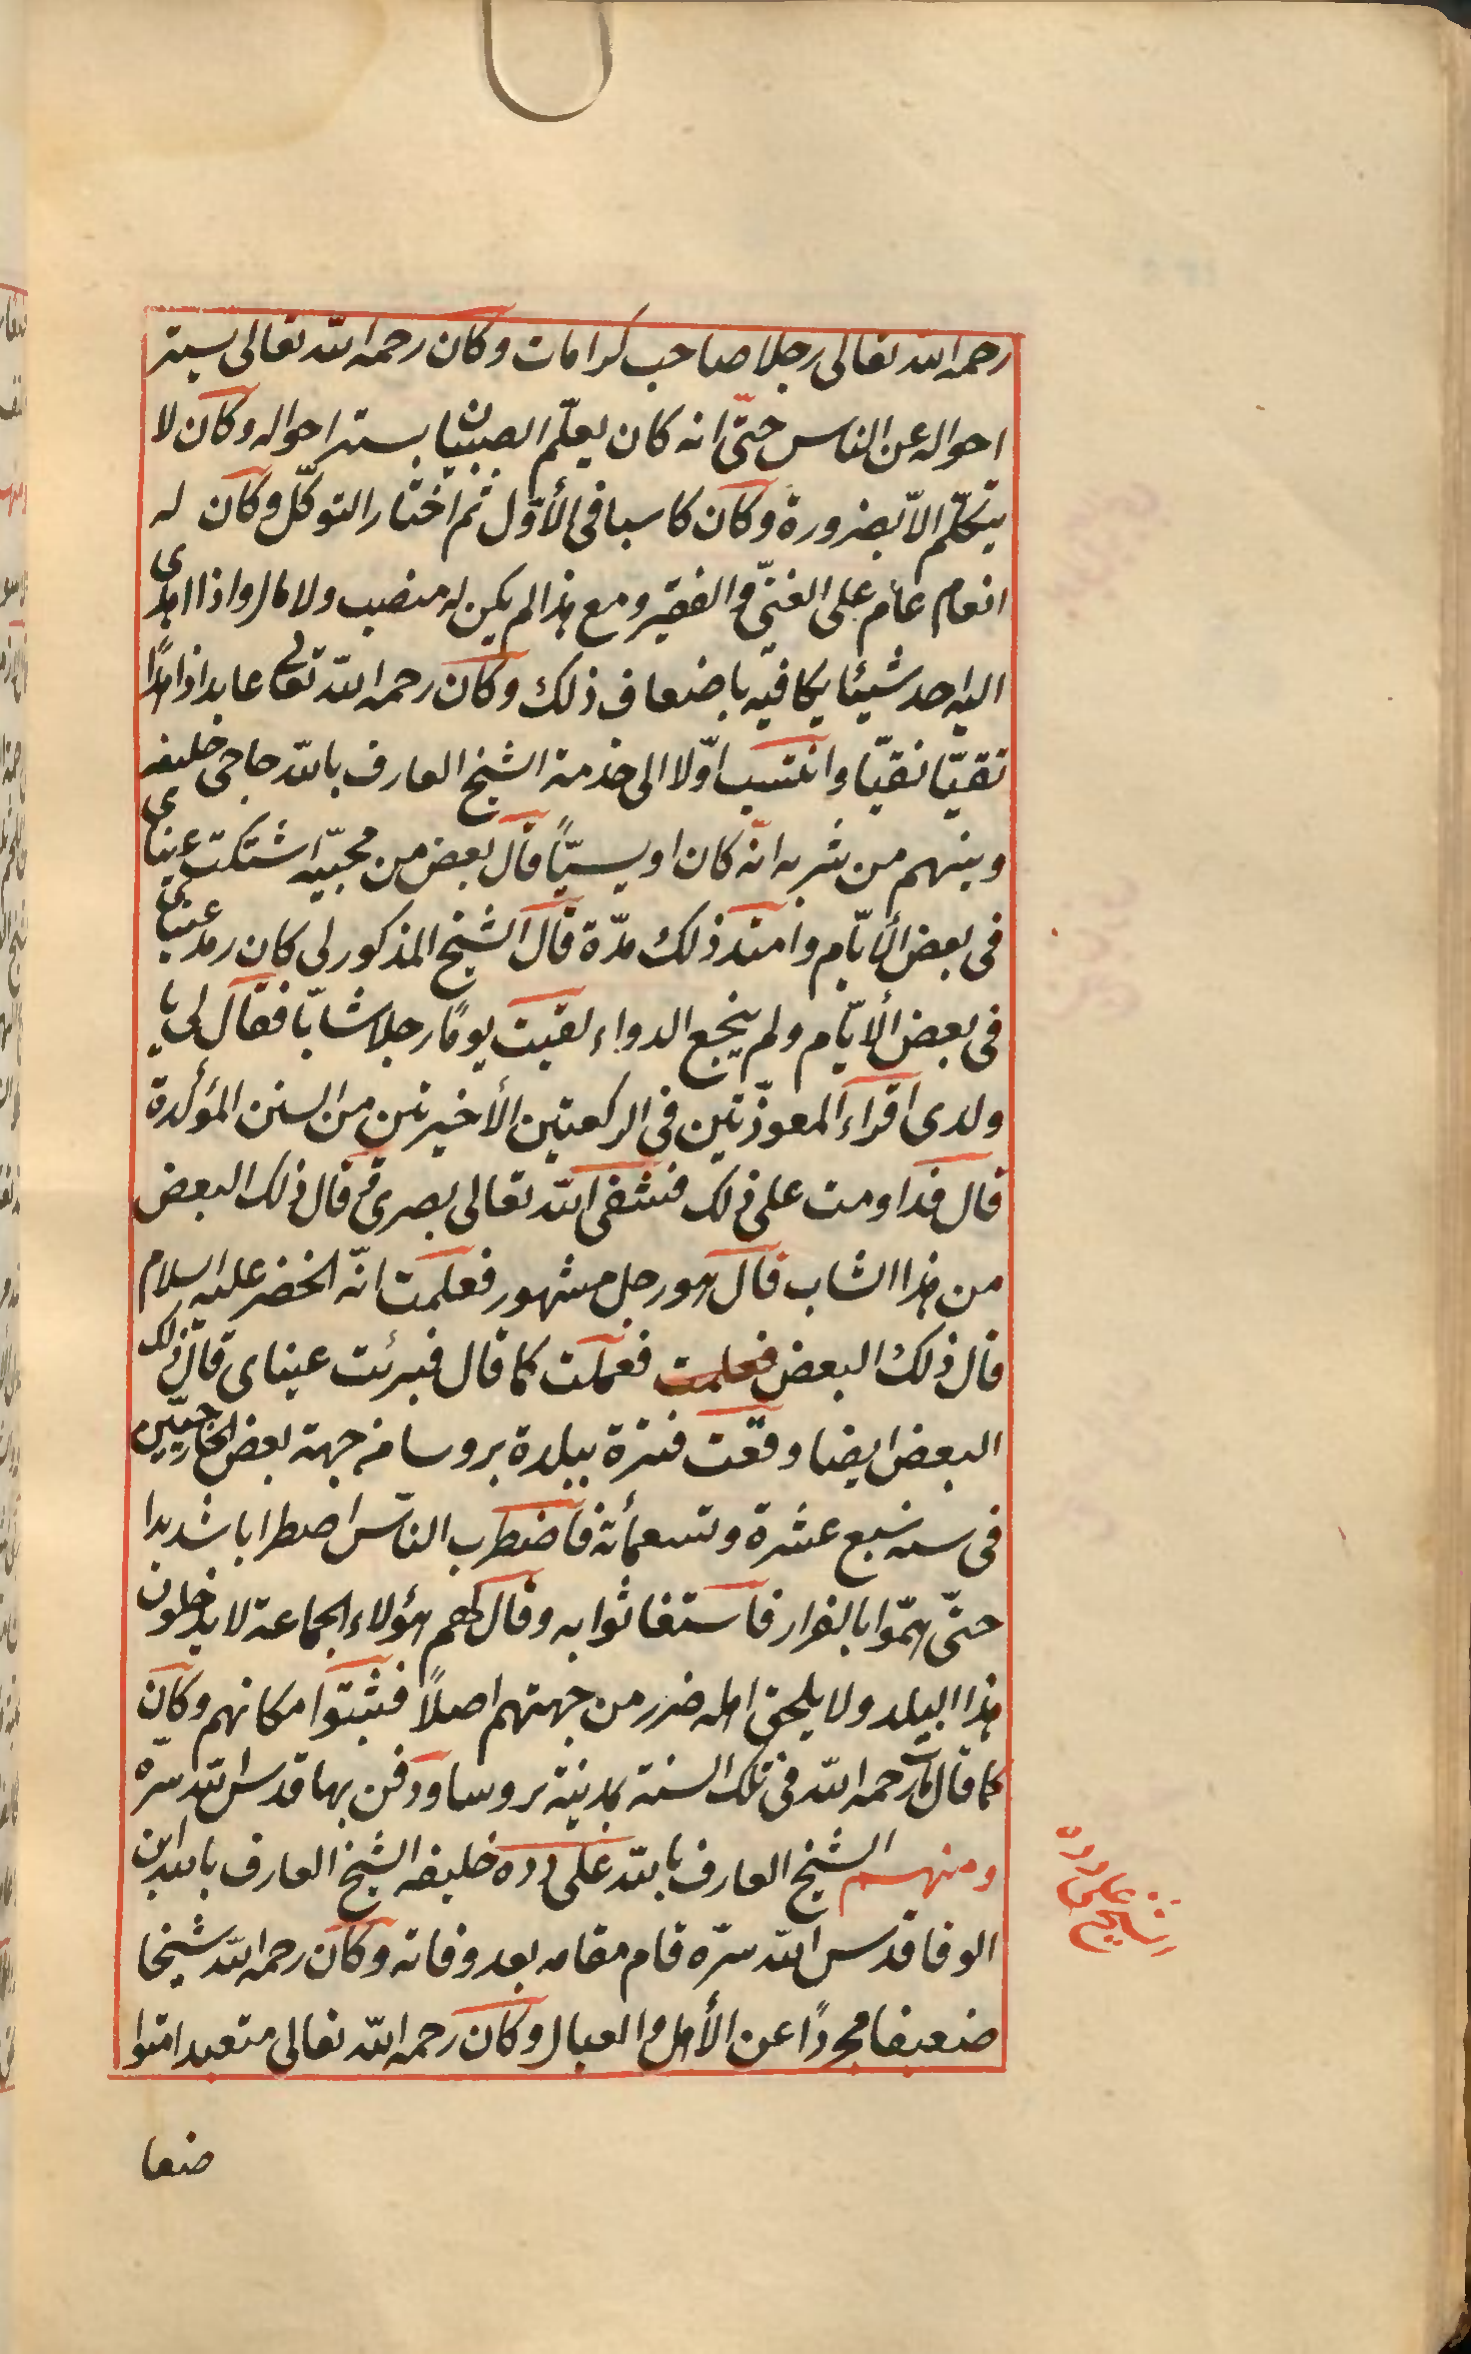 رحمه الله تعالى رجلا صاحب كرامات وكان رحمه الله تعالى يستر
احواله عن الناس حتّى انه كان يعلّم الصبيان يستر احواله وكان لا
يتكلّم الاّ بضرورة وكان كاسبا فى الأوّل ثم اختار التوكّل وكان له
انعام عامّ على الغنىّ والفقير ومع هذا لم يكن له منصب ولا مال واذا اهدى
اليه احد شيئا يكافيه باضعاف ذلك وكان رحمه الله تعالى عابدا زاهدًا
تقيّا نقيّا وانتسب اوّلا الى خذمة الشيخ العارف بالله حاجى خليفه
وبنهم من شربه انّه كان اويسيًّا قال بعض من محبيّه اشتكت عيناى
فى بعض الأيّام وامتد ذلك مدّة قال الشيخ المذكور لى كان رمد عيناى
فى بعض الأيّام ولم ينجع الدواء لقيت يومًا رجلا شابّا فقال لى يا
ولدى اقراء المعوذّتين فى الركعتين الأخيرتين من السنن المؤكّدة
قال فداومت على ذلك فشفى الله تعالى بصرى قال ذلك البعض
من هذا الشاب قال هو رجل مشهور فعلمت انّه الخضر عليه السلام
قال ذلك البعض فعلمت فعملت كما قال فبرئت عيناى قال ذلك
البعض ايضا وقعت فترة ببلدة بروسا من جهة بعض الخارجيّين
فى سنه سبع عشرة وتسعمأئة فاضطرب النّاس اضطرابا شديدا
حتّى همّوا بالفرار فاستغاثوا به وقال لهم هؤلاء الجماعة لا يدخلون
هذا البلد ولا يلحق اهله ضرر من جهتهم اصلاً فثبتوا مكانهم وكان
كما قال مات رحمه الله فى تلك السنة بمدينة بروسا ودفن بها قدس الله سرّه
ومنهم الشيخ العارف بالله على دده خليفه الشيخ العارف بالله ابن
الوفا قدس الله سرّه قام مقامه بعد وفاته وكان رحمه الله شيخا
ضعيفا مجردًا عن الأهل والعيال وكان رحمه الله تعالى متعبدا متوا
ضعا
شيخ على دده